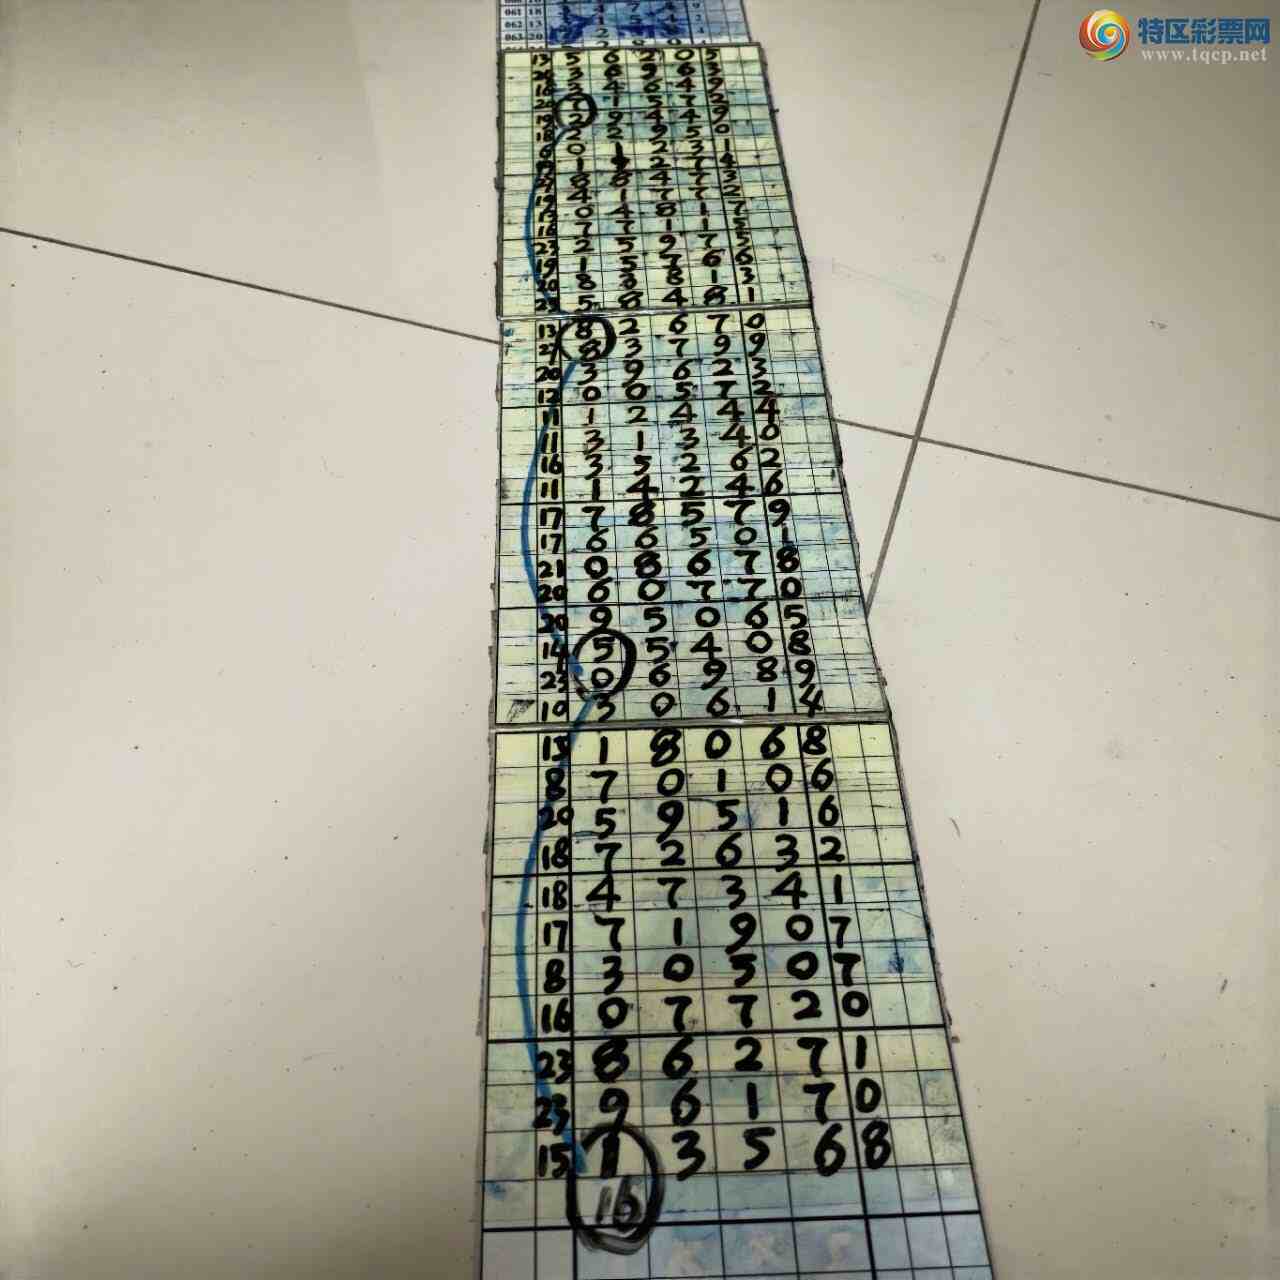 特区彩票网
www.tqcp.net
061 18
062 13
063 20
13 5 6 2 0 5
20 3 6 9 6 3
16 3 4 6 4 9
20 7 1 5 7 2
19 2 9 4 4 9
18 2 2 9 5 0
6 0 1 2 3 1
1 2 7 4
27 8 8 4 7 3
19 4 1 7 7 2
13 0 4 8 1 7
16 7 7 1 1 5
23 2 5 9 7 5
19 1 5 7 6 6
20 8 3 8 1 3
25 5 8 4 8 1
13 8 2 6 7 0
27 8 3 7 9 9
20 3 9 6 2 3
12 0 0 5 7 2
11 1 2 4 4 4
11 3 1 3 4 0
16 3 5 2 6 2
11 1 4 2 4 6
17 7 8 5 7 9
17 6 6 5 0 1
21 0 8 6 7 8
20 6 0 7 7 0
20 9 5 0 6 5
14 5 5 4 0 8
23 0 6 9 8 9
10 3 0 6 1 4
15 1 8 0 6 8
8 7 0 1 0 6
20 5 9 5 1 6
18 7 2 6 3 2
18 4 7 3 4 1
17 7 1 9 0 7
8 3 0 5 0 7
16 0 7 7 2 0
23 8 6 2 7 1
23 9 6 1 7 0
15 1 3 5 6 8
16